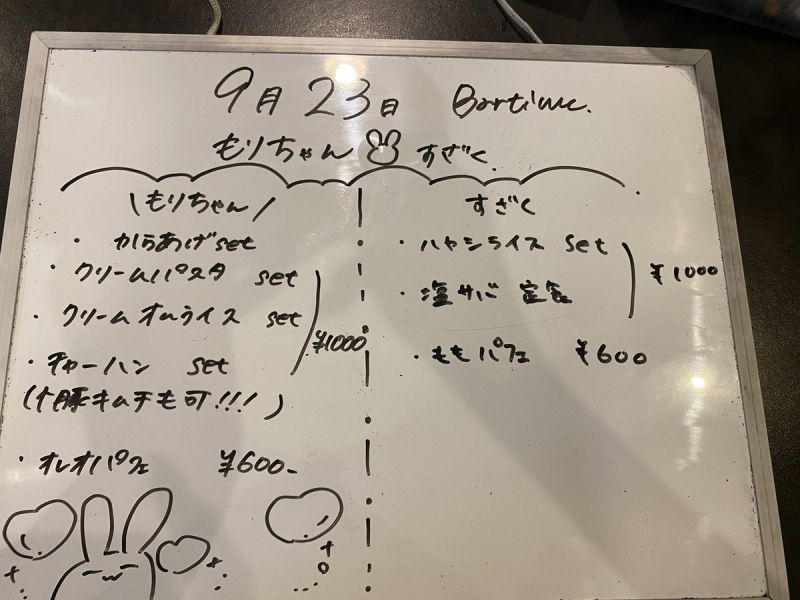 9月23日 Bartime.
もりちゃん すざく
\もりちゃん/
・からあげset
・クリームパスタ set
・クリームオムライス set
・チャーハン set
¥1000
(+豚キムチも可!!!)
・オレオパフェ ¥600-
すざく
・ハヤシライス set
・塩サバ定食
¥1000
・ももパフェ ¥600